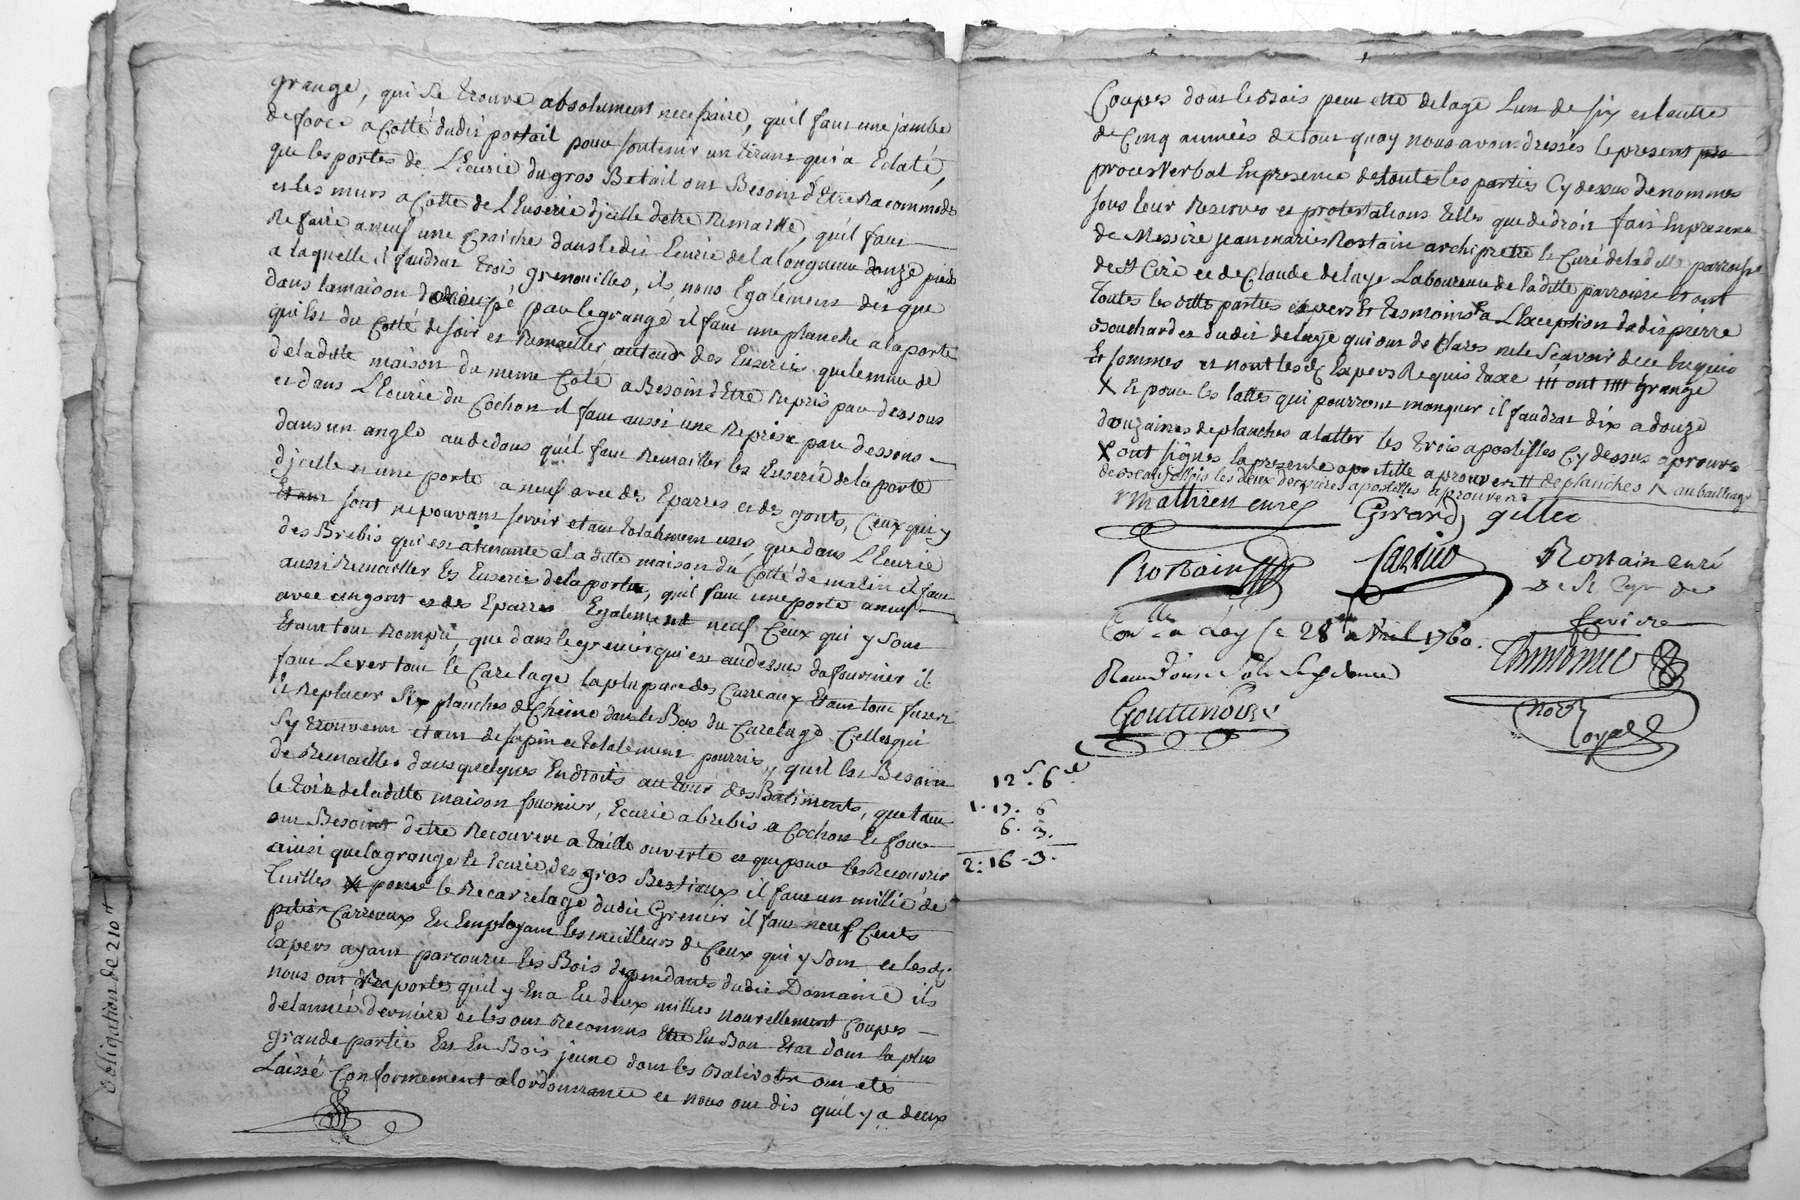 grange, qui se trouve absolument necessaire, qu'il faut une jambe
de force a Cotté dudit portail pour soutenir un tirant qui a Eclaté,
que les portes de L'Ecurie du gros Betail ont Besoin d'Etre Racommodé
et les murs a Cotté de L'Euserie d'jcelle d'etre Remaillé, qu'il faut
Refaire a neuf une Craiche dans ledit Ecurie de la longueur douze pieds
a laquelle il faudrat trois grenouilles, ils nous Egalement dit que
dans la maison occupé par legrange il faut une planche a la porte
qui est du Cotté de soir et Remailler autour des Euseries que le mur de
de la ditte maison du meme Coté a Besoin d'Etre Repris par dessous
et dans L'Ecurie du Cochon il faut aussi une Reprise par dessous
dans un angle au dedans qu'il faut Remailler les Euserie de la porte
d'jcelle et une porte a neuf avec des Eparres et des gonts, Ceux qui y
sont ne pouvant servir etant totalement uzés, que dans L'Ecurie
des Brebis qui est atenante a la ditte maison du Cotté de matin il faut
aussi Remailler les Euseries de la porte, qu'il faut une porte a neuf
avec un gont et des Eparres Egalement neuf Ceux qui y sont
Etant tout Rompû, que dans le grenier qui est au dessus du fournier il
faut Lever tout le Carelage la plus part des Carreaux Etant tout fusen
Et Replacer Six planches de Cheine dans le Bas du Carelage Celles qui
s'y trouvent etant de sapin et totalement pourris, qu'il est Besoin
de Remailler dans quelques Endroits autour des Batiments, que tout
le toit de la ditte maison fournier, Ecurie a brebis et Cochon Et four
ont Besoint d'etre Recouvert a taille ouverte et que pour les Recouvrir
ainsi que la grange Et Ecurie des gros Bestiaux il faut un millié de
tuilles X pour le Recarrelage dudit Grenier il faut neuf Cents
Carreaux En Employant les meilleurs de Ceux qui y sont et lesd.
Expers ayant parcouru les Bois dependants dudit Domaine ils
nous ont Raportes qu'il y En a Eu deux milles nouvellement Coupes
de lannée derniere et les ont Reconnus Etre En Bon Etat dont la plus
grande partie Est En Bois jeune dont les Balivotx ont etés
Laissé Conformement a lordonnance et nous ont dis qu'il y a deux
Coupes dont le Bois peut etre de lage l'un de six et l'autre
de Cinq années de tout quoy nous avons dressés le present
proces Verbal En presence de toutes les parties Cy dessus denommés
sous leur Reserves et protestations telles que de droit fait En presence
de Messire jean marie Rostain archipretre Et Curé de la ditte parroisse
de St Cire et de Claude delage Laboureur de la ditte parroisse et ont
toutes les dittes parties expers Et tesmoins a L'Exception dudit pierre
Bouchard et dudit delage qui ont de Clares ne le Scavoir de ce Enquis
Et sommes et nont lesd. Expers Requis taxe ont grange
X Et pour les lattes qui pourront manquer il faudrat dix a douze
douzaines de planches a latter les trois apostilles Cy dessus aprouvé
X ont signes la presente apostille aprouvé tt de planches X au bailliage
de Beaujollois les deux dernieres apostilles aprouvent
Mathieu curé Girard gillet
Rostain Carrict Rostain curé
De St Cyr de
faviere
Con lle a Loy Le 28 avril 1760.
Reçu Douze sols Six deniers
Goutenoire
Thimonnier
Nor
Royal
12 s. 6 d.
1. 17. 6
6. 3.
2. 16 - 3.
obligation de 210 tt